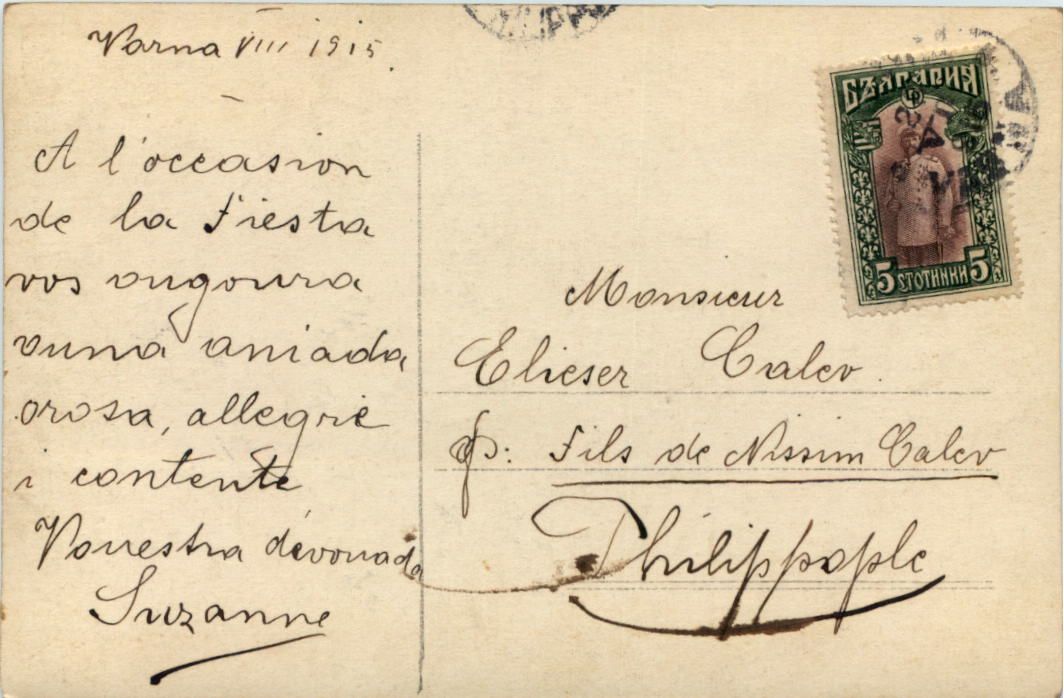 Varna VIII 1915.
A l'occasion
de la Fiesta
vos angoura
vuna aniada
orosa, allegre
i contente
Vouestra dévouada
Suzanne
БЪЛГАРИЯ
5 СТОТИНКИ 5
Monsieur
Elieser Calev.
Fils de Nissim Calev
Philippople